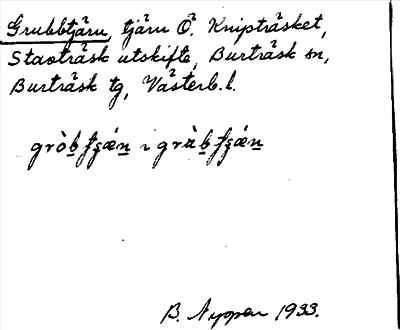 Grubbtjärn, tjärn Ö. Knipträsket,
Stavträsk utskifte, Burträsk sn,
Burträsk tg, Västerb. l.
B. Nyppen 1933.